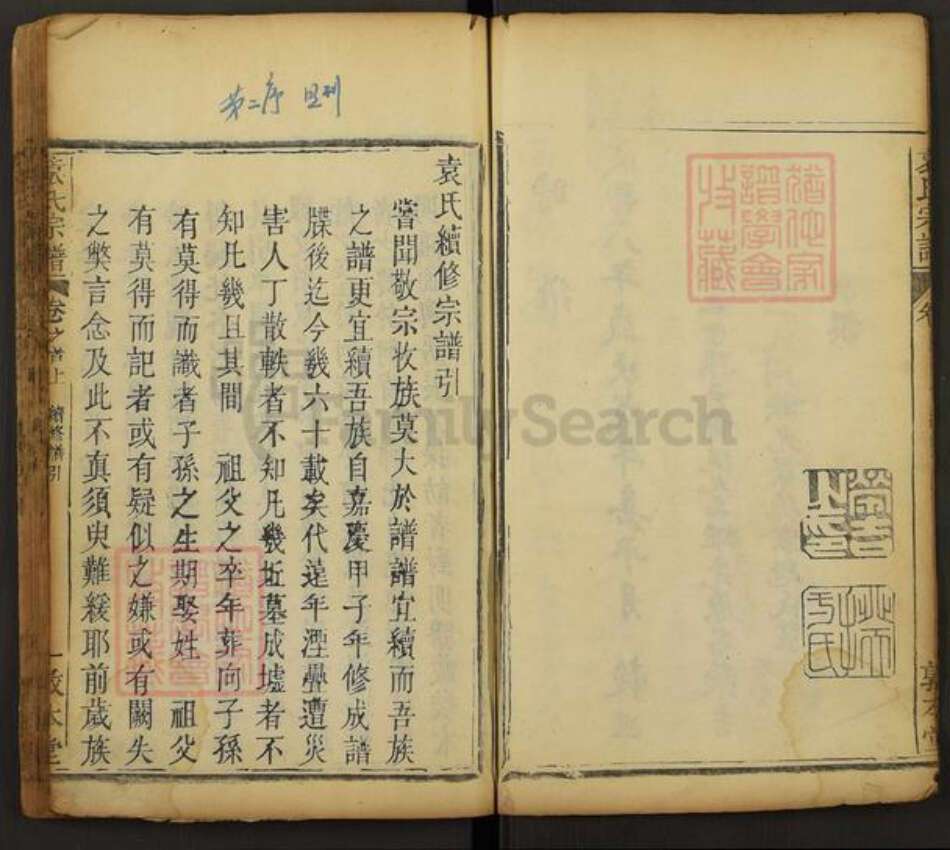 第二序
袁氏續修宗譜引
嘗聞敬宗收族莫大於譜譜宜續而吾族
之譜更宜續吾族自嘉慶甲子年修成譜
牒後迄今幾六十載矣代遠年湮疊遭災
害人丁散軼者不知凡幾坵墓成墟者不
知凡幾且其間 祖父之卒年葬向子孫
有莫得而識者子孫之生期娶姓 祖父
有莫得而記者或有疑似之嫌或有闕失
之獘言念及此不眞須臾難緩耶前歲族
袁氏宗譜 卷之首上 續修譜引 一 敦本堂
FamilySearch
袁氏宗譜
猶他家譜學會收藏
敦本堂